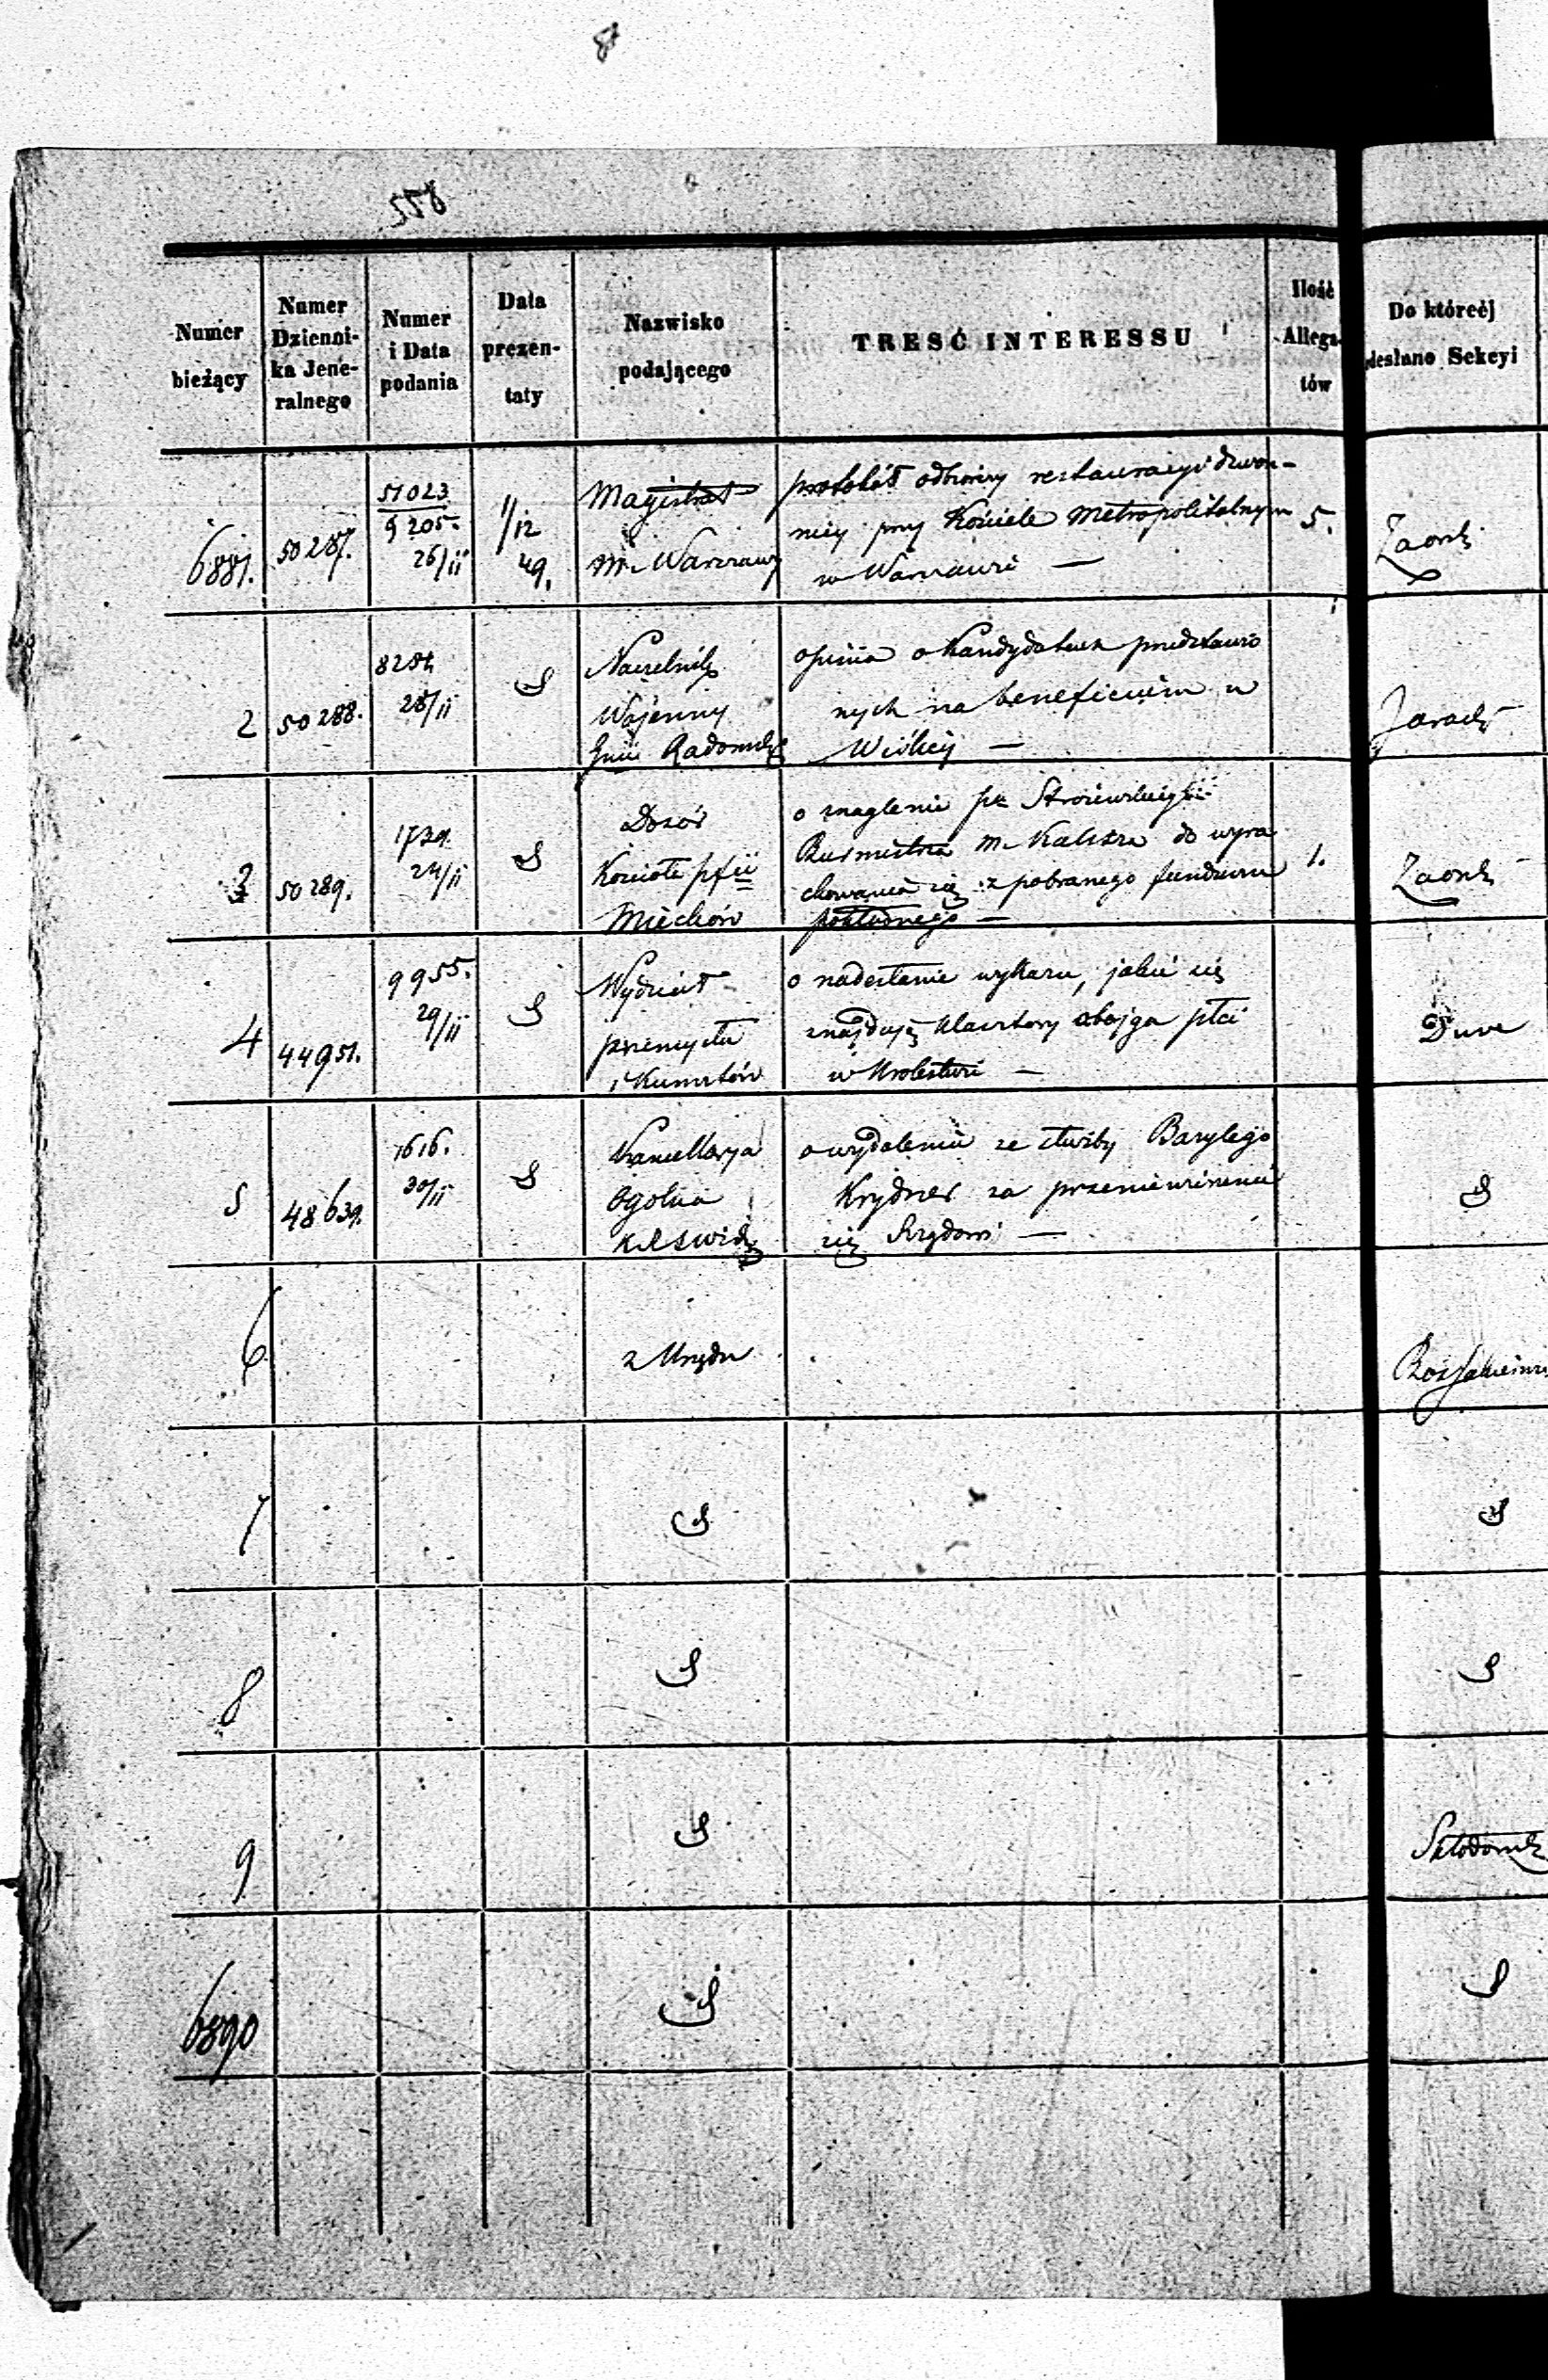 558
Numer bieżący
Numer Dzienni-
ka Jene-
ralnego
Numer
i Data
podania
Data
prezen-
taty
Nazwisko
podającego
TRESĆ INTERESSU
Ilość
Allega-
tów
Do któreéj
desłano Sekcyi
6881.
50287.
51023
9205.
26/11
1/12
49.
Magistrat
M. Warszawy
protokół odbiorczy restauracyi dzwon-
nicy przy Kościele Metropolitalnym
w Warszawie —
5.
Zaorsk
2
50288.
8284
28/11
Naczelnik
Wojenny
Gnii Radomsk
opinia o Kandydatach przedstawio
nych na beneficium w
Wiślicy —
3
50289.
1739.
24/11
Dozór
Kościoła pfii
Miechów
o znaglenie
Burmistrza M. Kalisza do wyra
chowania się z pobranego funduszu
pokładnego —
1.
Zaorsk
4
44951.
9955.
29/11
Wydział
przemysłu
i Kunsztów
o nadesłanie wykazu, jakie się
znajdują Klasztory obojga płci
w Królestwie —
Duve
5
48639.
1616.
30/11
Kancellarya
Ogólna
o wydaleniu ze służby Bazylego
Krydner za przeniewierzenie
się Rządowi —
6
z Urzędu
7
8
9
Skłodowsk
6890